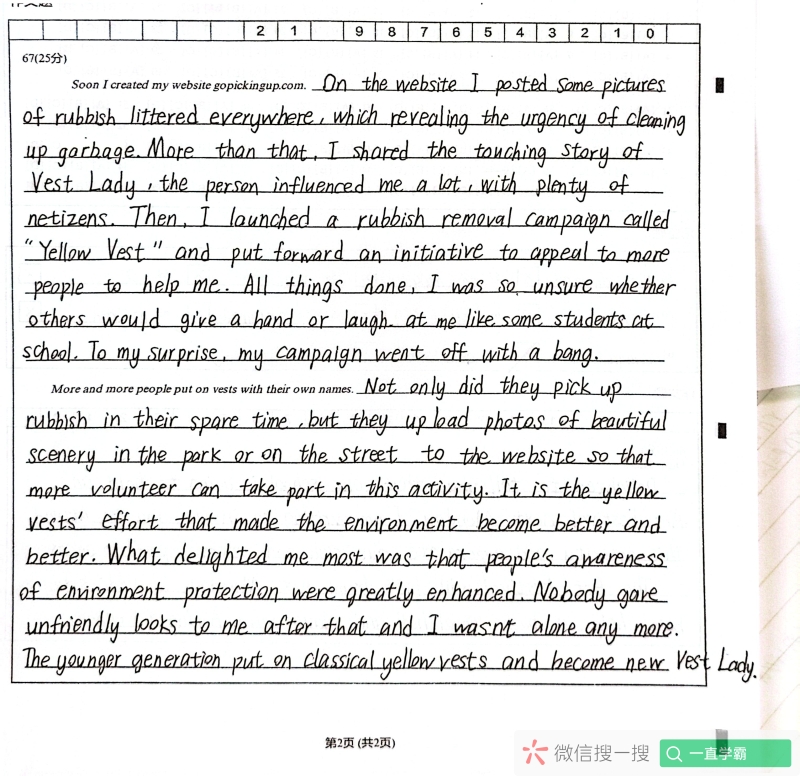 2 1 9 8 7 6 5 4 3 2 1 0
67(25分)
Soon I created my website gopickingup.com. On the website I posted some pictures
of rubbish littered everywhere, which revealing the urgency of cleaning
up garbage. More than that, I shared the touching story of
Vest Lady, the person influenced me a lot, with plenty of
netizens. Then, I launched a rubbish removal campaign called
"Yellow Vest" and put forward an initiative to appeal to more
people to help me. All things done, I was so unsure whether
others would give a hand or laugh at me like some students at
school. To my surprise, my campaign went off with a bang.
More and more people put on vests with their own names. Not only did they pick up
rubbish in their spare time, but they upload photos of beautiful
scenery in the park or on the street to the website so that
more volunteer can take part in this activity. It is the yellow
vests' effort that made the environment become better and
better. What delighted me most was that people's awareness
of environment protection were greatly enhanced. Nobody gave
unfriendly looks to me after that and I wasn't alone any more.
The younger generation put on classical yellow vests and become new Vest Lady.
第2页 (共2页)
微信搜一搜 一直学霸